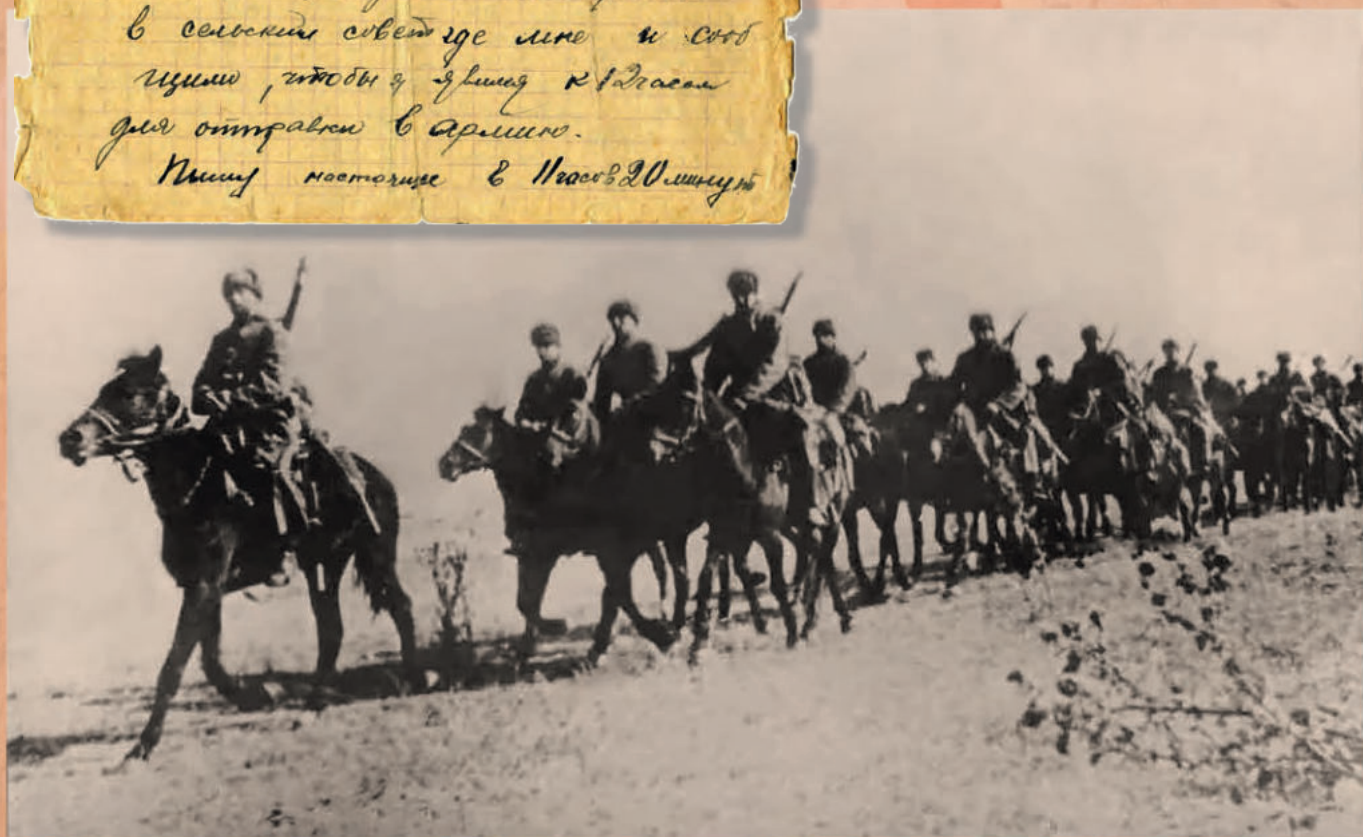 в сельский совет где мне и сооб
щили, чтобы я явился к 12 часам
для отправки в армию.
Пишу настоящее в 11 часов 20 минут